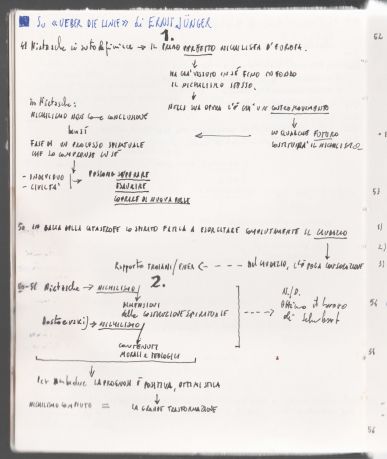 Su «UEBER DIE LINIE» di ERNST JÜNGER
1.
49 Nietzsche si autodefinisce → IL PRIMO PERFETTO NICHILISTA D'EUROPA.
HA GIA' VISSUTO IN SÉ FINO IN FONDO
IL NICHILISMO STESSO.
NELLA SUA OPERA C'È GIA' UN CONTROMOVIMENTO
IN QUALCHE FUTURO
SOSTITUIRA' IL NICHILISMO
in Nietzsche:
NICHILISMO NON COME CONCLUSIONE
bensì
FASE DI UN PROCESSO SPIRITUALE
CHE LO COMPRENDE IN SÉ
- INDIVIDUO
- CIVILTA'
POSSONO SUPERARE
ESAURIRE
COPRIRE DI NUOVA PELLE
50 IN BALIA DELLA CATASTROFE LO SPIRITO PARLA A ESERCITARE COMPIUTAMENTE IL GIUDIZIO
Rapporto TROIANI / ENEA <--- NEL GIUDIZIO, C'È POCA CONSOLAZIONE
2.
50-51 Nietzsche → NICHILISMO
DIMENSIONI
della COSTRUZIONE SPIRITUALE
Dostoevskij → NICHILISMO
CONTENUTI
MORALI e TEOLOGICI
N./D.
di
Per entrambi LA PROGNOSI È POSITIVA, OTTIMISTICA
NICHILISMO COMPIUTO = LA GRANDE TRASFORMAZIONE
52
53
1)
2)
3)
54
56
56